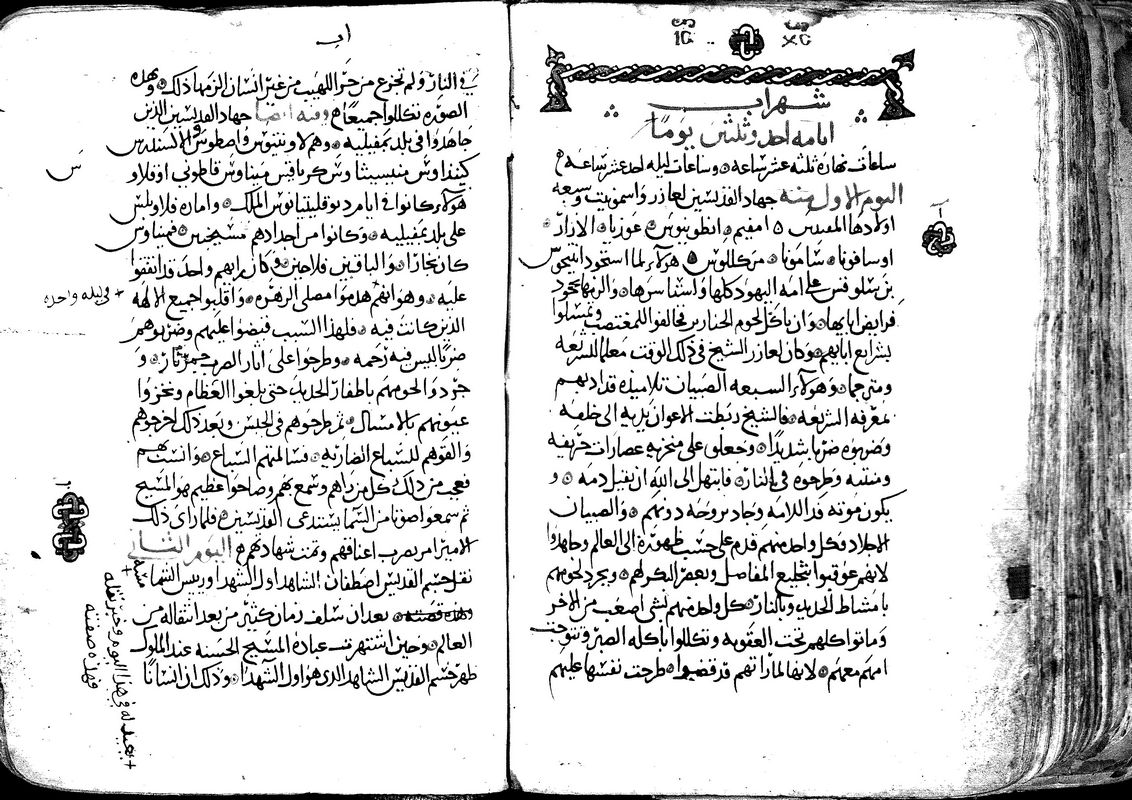 شهر اب
ايامه احد وثلثين يومًا
ساعات نهاره ثلثه عشر ساعه وساعات ليله احد عشر ساعه
اليوم الاول منه جهاد القديسين لعازر واسمونيت وسبعه
اولادها المقدسين افيم انطونينوس عوزيا الازار
اوسافونا سامونا مركللوس هولاء لما استحوذ انتيخوس
بن سلوقس على امه اليهود كلها واستاسرها والزمها بجحود
فرايض ابايها وان ياكل لحوم الخنازير مخالفوا
بشرايع ابايهم وكان لعازر الشيخ في ذلك الوقت معلما للشريعه
ومترجما وهولاء السبعه الصبيان تلاميذه قد ادبهم
بمعرفه الشريعه فالشيخ ربطت الاعوان يديه الى خلفه
وضربوه ضربا شديدا وجعلوا على منخريه عصارات حريفه
ومنتنه وطرحوه في النار فابتهل الى الله ان يقبل دمه و
يكون موته فدا لامه وجاد بروحه دونهم والصبيان
الاجلاد فكل واحد منهم قدم على حسب ظهوره الى العالم وجاهدوا
لانهم عوقبوا بتخليع المفاصل وبجرد لحومهم
بامشاط الحديد وبالنار كل واحد منهم بشي اصعب من الاخر
وماتوا كلهم تحت العقوبه وتكللوا باكله الصبر وتتوجت
امهم معهم لانها لما راتهم قد قضيوا طرحت نفسها عليهم
اب
في النار ولم تجزع من حر اللهيب من غير انسان الزمها ذلك وبهذه
الصوره تكللوا جميعا وفيه ايضا جهاد القديسين الذين
جاهدوا في بلد بمفيليه وهم لاونتيوس واطوس والاكسندرس
كيندااوس منيسيثاوس كرياقس ميناوس قاطوني اوقلاو
هولاء كانوا في ايام ديوقليتيانوس الملك واماره فلاويانس
على بلد بمفيليه وكانوا من اجدادهم مسيحيين فميناوس
كان نجارا والباقين فلاحين وكان رايهم واحد قد اتفقوا
عليه وهو انهم هدموا مصلى الزهره واقلبوا جميع الالهه
+ في ليله واحده
الذين كانت فيه فلهذا السبب قبضوا عليهم وضربوهم
ضربا ليس فيه رحمه وطرحوا على اثار الضرب جمر نار و
جردوا لحومهم باظفار الحديد حتى بلغوا العظام ونخزوا
عيونهم بالامسال ثم طرحوهم في الحبس وبعد ذلك اخرجوهم
والقوهم للسباع الضاريه فسالمتهم السباع وانست بهم
فعجب من ذلك كل من راهم وسمع بهم وصاحوا عظيم هو المسيح
ثم سمعوا صوتا من السما يستدعي القديسين فلما راى ذلك
الامير امر بضرب اعناقهم وتمت شهادتهم اليوم الثاني
منه
نقل جسم القديس اصطفان الشاهد اول الشهدا وريس الشمامسه
+ يعيد له في هذا اليوم وخبر نقله
فهذه صفته
وهذه قصته بعد ان سلف زمان كثير من بعد انتقاله من
العالم وحين اشتهرت عباده المسيح الحسنه عند الملوك
ظهر جسم القديس الشاهد الذي هو اول الشهدا وذلك ان انسانا